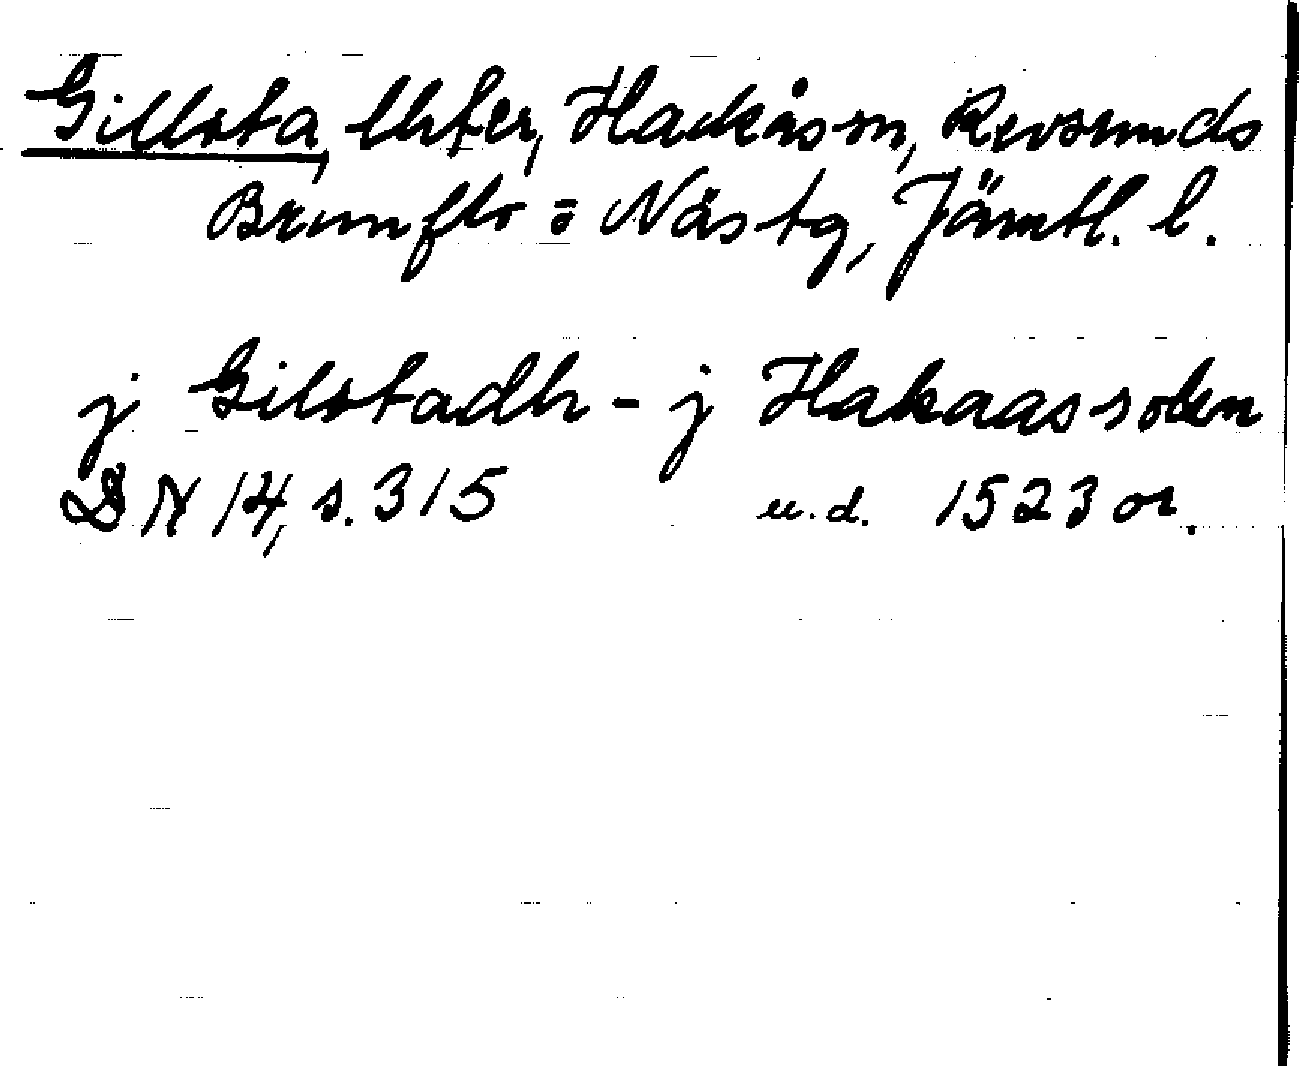 Gillsta, Utfer, Hackås sn, Revsunds
Brunflo o Näs tg, Jämtl. l.
j Gilstadh - j Hakaas sokn
DN 14, s. 315 u.d. 1523 or.